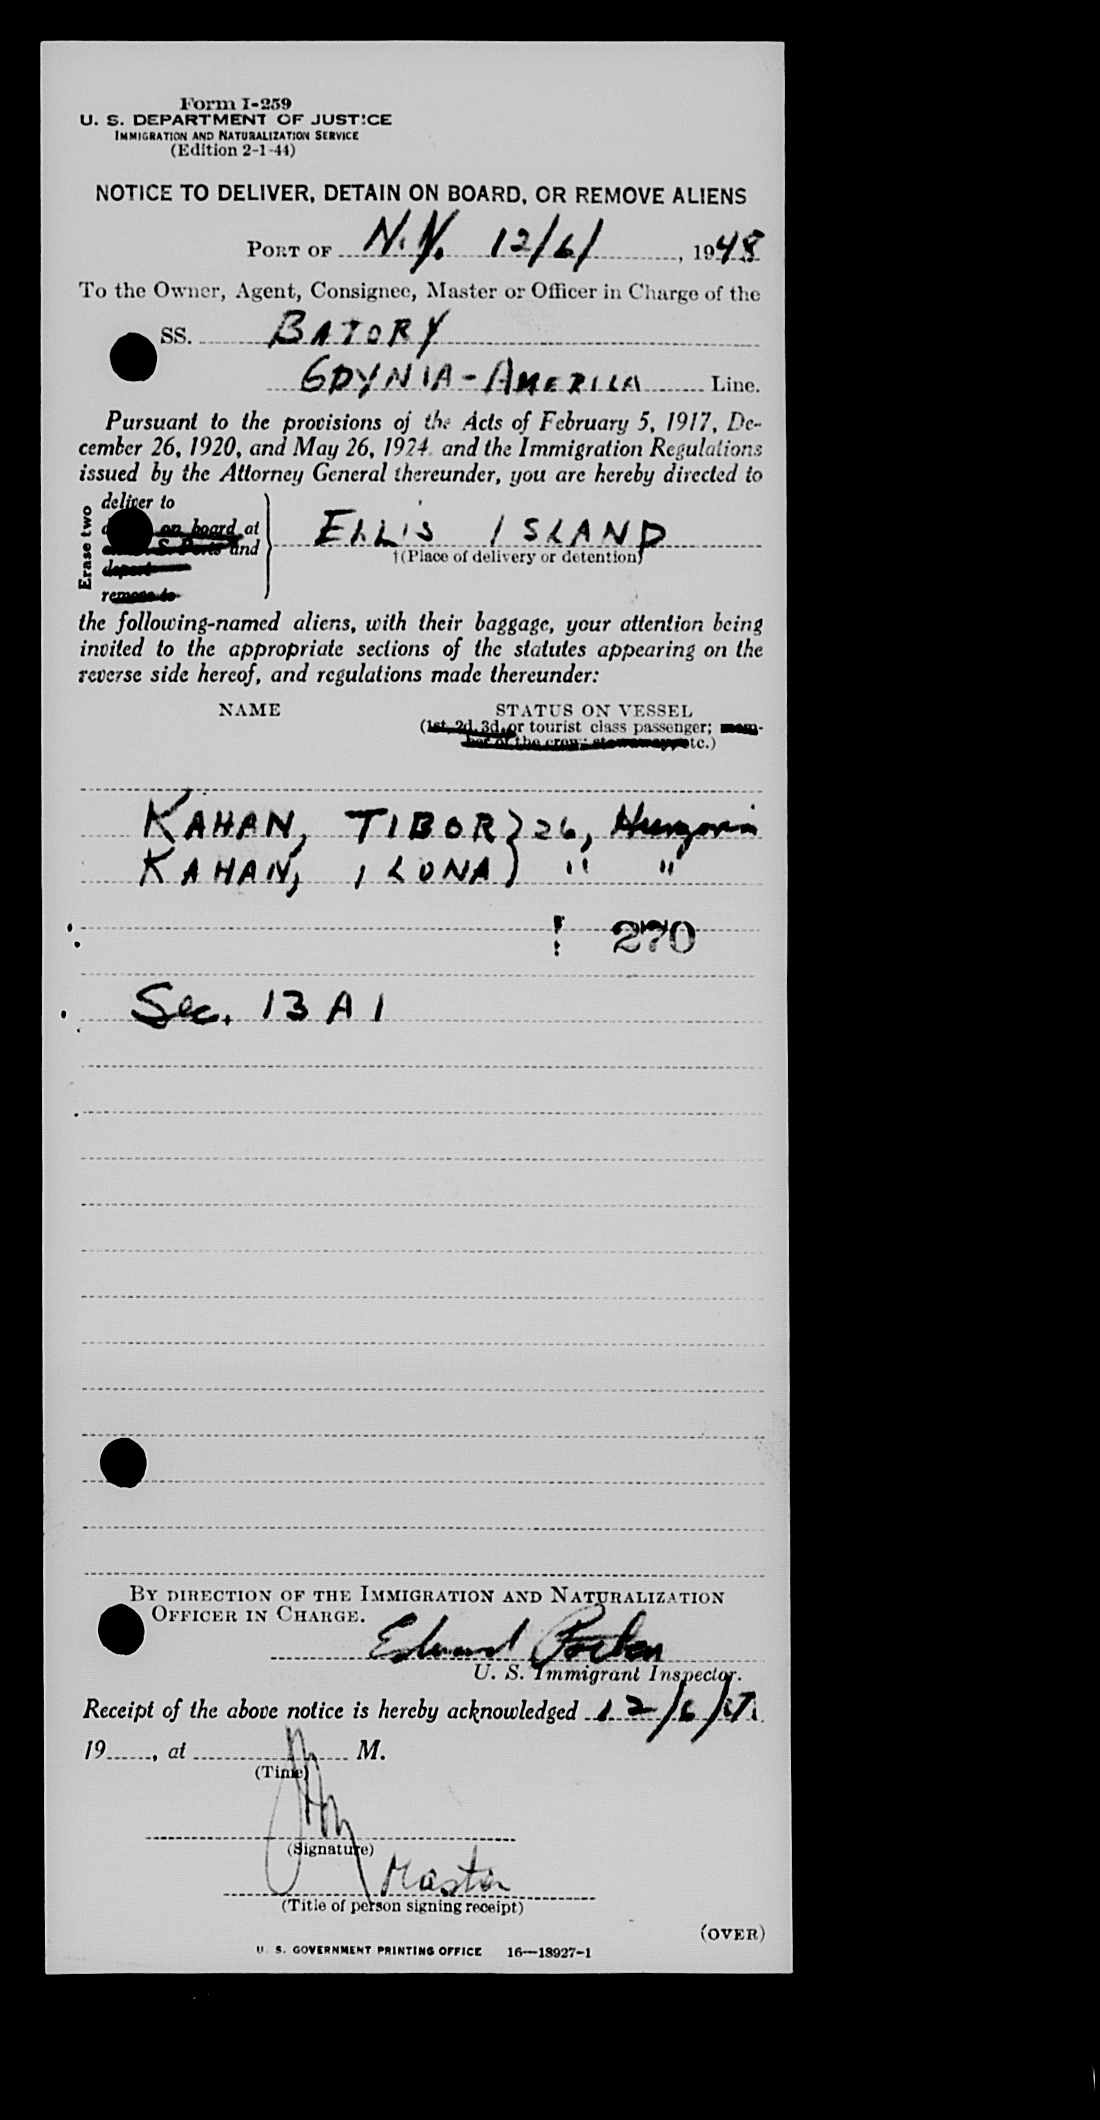 Form I-259
U. S. DEPARTMENT OF JUSTICE
IMMIGRATION AND NATURALIZATION SERVICE
(Edition 2-1-44)
NOTICE TO DELIVER, DETAIN ON BOARD, OR REMOVE ALIENS
PORT OF N.Y. 12/6/, 1948
To the Owner, Agent, Consignee, Master or Officer in Charge of the
SS. BATORY
GDYNIA-AMERICA Line.
Pursuant to the provisions of the Acts of February 5, 1917, De-
cember 26, 1920, and May 26, 1924, and the Immigration Regulations
issued by the Attorney General thereunder, you are hereby directed to
Erase two
deliver to
on board at
S. Ports and
depart
remove to
ELLIS ISLAND
†(Place of delivery or detention)
the following-named aliens, with their baggage, your attention being
invited to the appropriate sections of the statutes appearing on the
reverse side hereof, and regulations made thereunder:
NAME STATUS ON VESSEL
(1st, 2d, 3d, or tourist class passenger; mem-
ber of the crew; stowaway, etc.)
KAHAN, TIBOR } 26, Hungarian
KAHAN, ILONA ) " "
! 270
Sec. 13 A 1
BY DIRECTION OF THE IMMIGRATION AND NATURALIZATION
OFFICER IN CHARGE.
Edward
U. S. Immigrant Inspector.
Receipt of the above notice is hereby acknowledged 12/6/
19, at M.
(Time)
(Signature)
Master
(Title of person signing receipt)
(OVER)
U. S. GOVERNMENT PRINTING OFFICE 16—18927-1